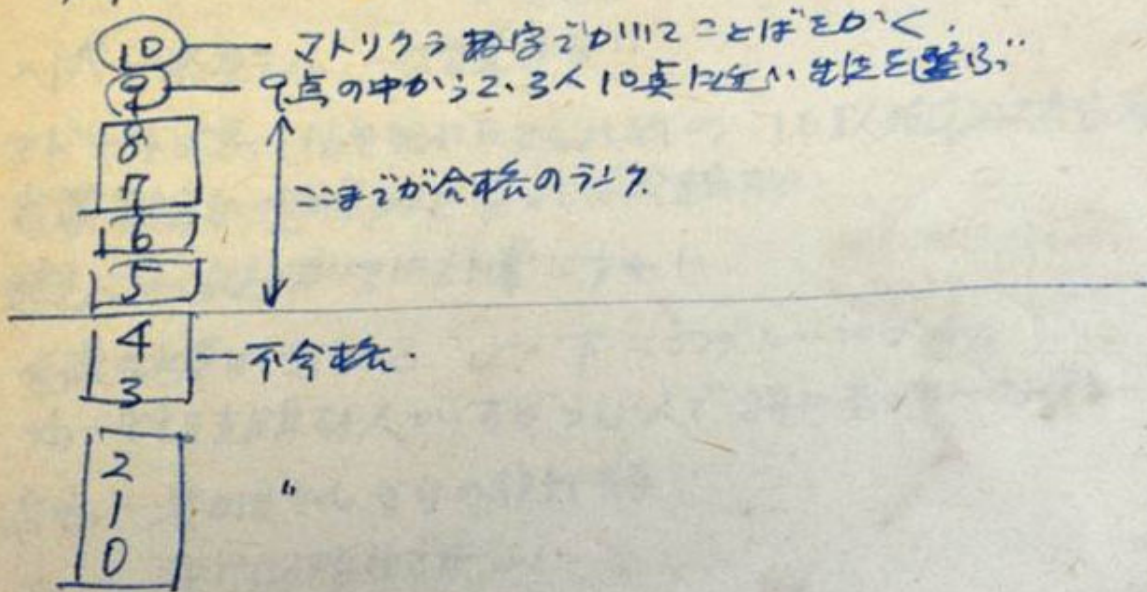 10 — マトリクラ 数字でかいて ことばをかく.
9 — 9点の中から2、3人10点に近い生徒を選ぶ
8
7
ここまでが合格のランク.
6
5
4
3
— 不合格.
2
1
0
〃